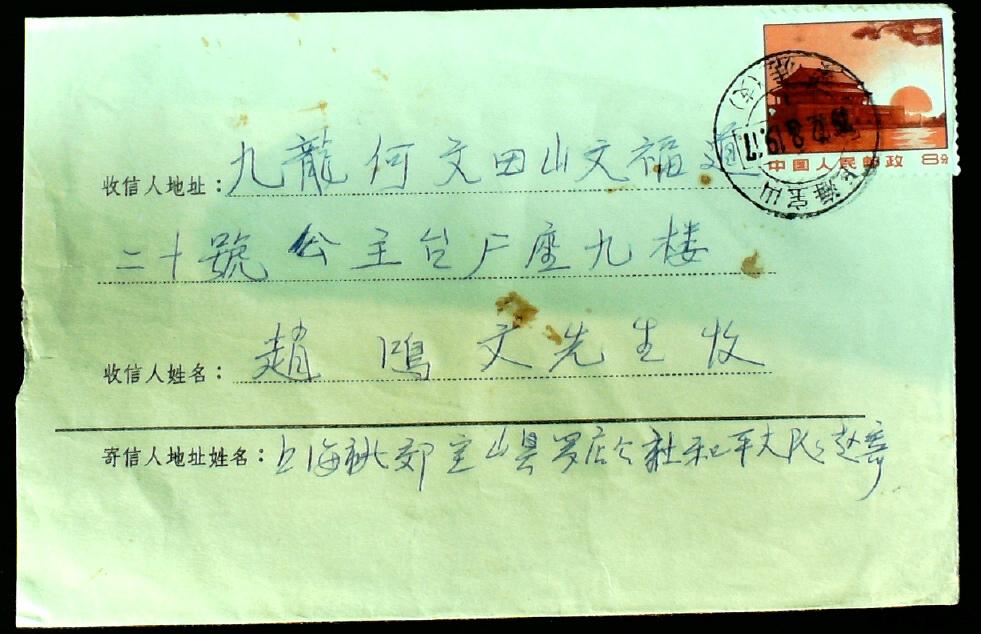 中国人民邮政 8分
上海宝山
收信人地址：九龍何文田山文福道
二十號 公主台 厂座九楼
收信人姓名：趙鴻文先生收
寄信人地址姓名：上海 郊宝山县罗店公社和平大队 赵寄